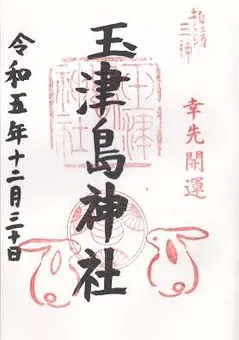 和歌三神
幸先開運
玉津島神社
令和五年十二月三十日
玉津島神社